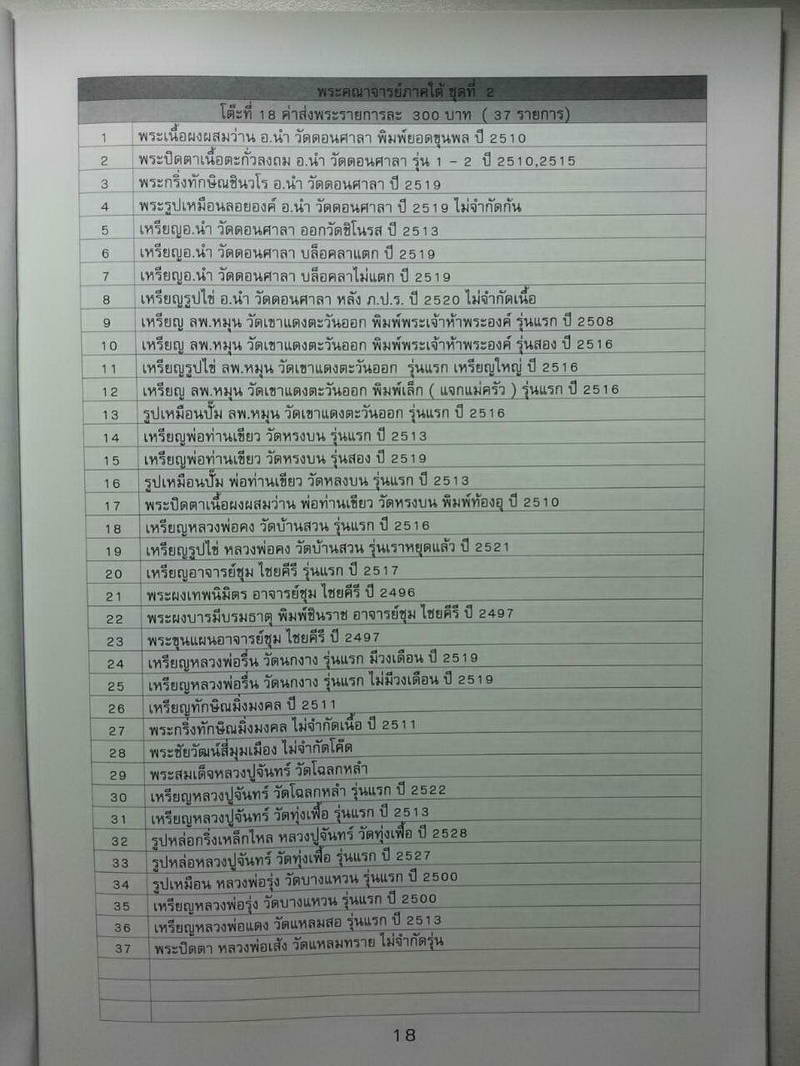 พระคณาจารย์ภาคใต้ ชุดที่ 2
โต๊ะที่ 18 ค่าส่งพระรายการละ 300 บาท ( 37 รายการ)
1 พระเนื้อผงผสมว่าน อ.นำ วัดดอนศาลา พิมพ์ยอดขุนพล ปี 2510
2 พระปิดตาเนื้อตะกั่วลงถม อ.นำ วัดดอนศาลา รุ่น 1 - 2 ปี 2510,2515
3 พระกริ่งทักษิณชินวโร อ.นำ วัดดอนศาลา ปี 2519
4 พระรูปเหมือนลอยองค์ อ.นำ วัดดอนศาลา ปี 2519 ไม่จำกัดก้น
5 เหรียญอ.นำ วัดดอนศาลา ออกวัดชิโนรส ปี 2513
6 เหรียญอ.นำ วัดดอนศาลา บล็อคลาแตก ปี 2519
7 เหรียญอ.นำ วัดดอนศาลา บล็อคลาไม่แตก ปี 2519
8 เหรียญรูปไข่ อ.นำ วัดดอนศาลา หลัง ภ.ป.ร. ปี 2520 ไม่จำกัดเนื้อ
9 เหรียญ ลพ.หมุน วัดเขาแดงตะวันออก พิมพ์พระเจ้าห้าพระองค์ รุ่นแรก ปี 2508
10 เหรียญ ลพ.หมุน วัดเขาแดงตะวันออก พิมพ์พระเจ้าห้าพระองค์ รุ่นสอง ปี 2516
11 เหรียญรูปไข่ ลพ.หมุน วัดเขาแดงตะวันออก รุ่นแรก เหรียญใหญ่ ปี 2516
12 เหรียญ ลพ.หมุน วัดเขาแดงตะวันออก พิมพ์เล็ก ( แจกแม่ครัว ) รุ่นแรก ปี 2516
13 รูปเหมือนปั๊ม ลพ.หมุน วัดเขาแดงตะวันออก รุ่นแรก ปี 2516
14 เหรียญพ่อท่านเขียว วัดหรงบน รุ่นแรก ปี 2513
15 เหรียญพ่อท่านเขียว วัดหรงบน รุ่นสอง ปี 2519
16 รูปเหมือนปั๊ม พ่อท่านเขียว วัดหลงบน รุ่นแรก ปี 2513
17 พระปิดตาเนื้อผงผสมว่าน พ่อท่านเขียว วัดหรงบน พิมพ์ท้องอุ ปี 2510
18 เหรียญหลวงพ่อคง วัดบ้านสวน รุ่นแรก ปี 2516
19 เหรียญรูปไข่ หลวงพ่อคง วัดบ้านสวน รุ่นเราหยุดแล้ว ปี 2521
20 เหรียญอาจารย์ชุม ไชยคีรี รุ่นแรก ปี 2517
21 พระผงเทพนิมิตร อาจารย์ชุม ไชยคีรี ปี 2496
22 พระผงบารมีบรมธาตุ พิมพ์ชินราช อาจารย์ชุม ไชยคีรี ปี 2497
23 พระขุนแผนอาจารย์ชุม ไชยคีรี ปี 2497
24 เหรียญหลวงพ่อรื่น วัดนกงาง รุ่นแรก มีวงเดือน ปี 2519
25 เหรียญหลวงพ่อรื่น วัดนกงาง รุ่นแรก ไม่มีวงเดือน ปี 2519
26 เหรียญทักษิณมิ่งมงคล ปี 2511
27 พระกริ่งทักษิณมิ่งมงคล ไม่จำกัดเนื้อ ปี 2511
28 พระชัยวัฒน์สี่มุมเมือง ไม่จำกัดโค๊ด
29 พระสมเด็จหลวงปูจันทร์ วัดโฉลกหลำ
30 เหรียญหลวงปูจันทร์ วัดโฉลกหลำ รุ่นแรก ปี 2522
31 เหรียญหลวงปูจันทร์ วัดทุ่งเฟื้อ รุ่นแรก ปี 2513
32 รูปหล่อกริ่งเหล็กไหล หลวงปูจันทร์ วัดทุ่งเฟื้อ ปี 2528
33 รูปหล่อหลวงปูจันทร์ วัดทุ่งเฟื้อ รุ่นแรก ปี 2527
34 รูปเหมือน หลวงพ่อรุ่ง วัดบางแหวน รุ่นแรก ปี 2500
35 เหรียญหลวงพ่อรุ่ง วัดบางแหวน รุ่นแรก ปี 2500
36 เหรียญหลวงพ่อแดง วัดแหลมสอ รุ่นแรก ปี 2513
37 พระปิดตา หลวงพ่อเส้ง วัดแหลมทราย ไม่จำกัดรุ่น
18